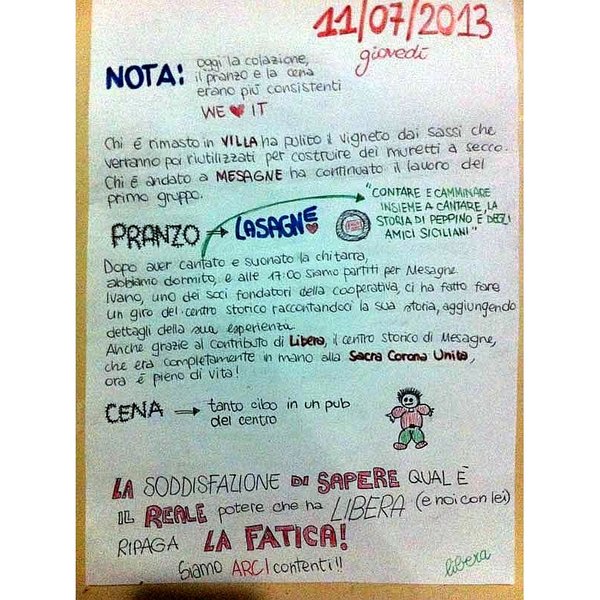 11/07/2013
giovedì
NOTA! oggi la colazione,
il pranzo e la cena
erano più consistenti
WE ❤ IT
Chi é rimasto in VILLA ha pulito il vigneto dai sassi che
verranno poi riutilizzati per costruire dei muretti a secco.
Chi é andato a MESAGNE ha continuato il lavoro del
primo gruppo.
"CONTARE E CAMMINARE
INSIEME A CANTARE, LA
STORIA DI PEPPINO E DEGLI
AMICI SICILIANI"
PRANZO → LASAGNE
Dopo aver cantato e suonato la chitarra,
abbiamo dormito, e alle 17:00 siamo partiti per Mesagne
Ivano, uno dei soci fondatori della cooperativa, ci ha fatto fare
un giro del centro storico raccontandoci la sua storia, aggiungendo
dettagli della sua esperienza.
Anche grazie al contributo di Libera, il centro storico di Mesagne,
che era completamente in mano alla Sacra Corona Unita,
ora é pieno di vita!
CENA → tanto cibo in un pub
del centro
LA SODDISFAZIONE DI SAPERE QUAL É
IL REALE potere che ha LIBERA (e noi con lei)
RIPAGA LA FATICA!
Siamo ARCI contenti!!
libera